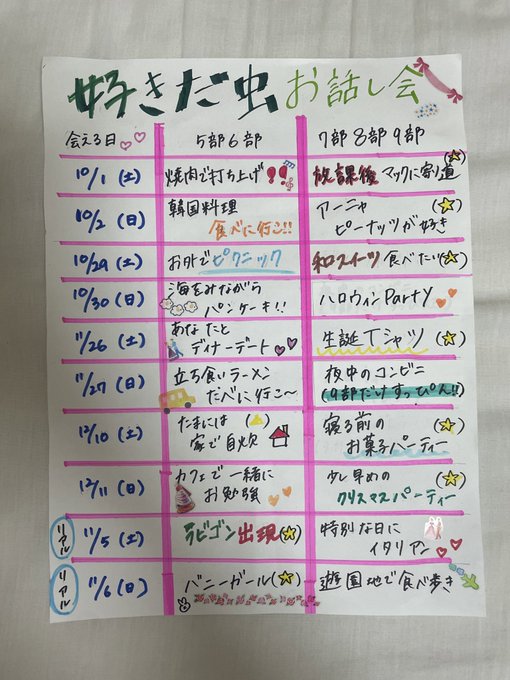 好きだ虫お話し会
会える日 5部6部 7部8部9部
10/1(土) 焼肉で打ち上げ!! 放課後マックに寄り道(☆)
10/2(日) 韓国料理 食べに行こ!! アーニャ(☆) ピーナッツが好き
10/29(土) お外でピクニック 和スイーツ食べたい(☆)
10/30(日) 海をみながら パンケーキ!! ハロウィンParty
11/26(土) あなたと ディナーデート 生誕Tシャツ(☆)
11/27(日) 立ち食いラーメン たべに行こ〜 夜中のコンビニ (9部だけすっぴん!!)
12/10(土) たまには(△) 家で自炊 寝る前の(☆) お菓子パーティー
12/11(日) カフェで一緒に お勉強 少し早めの(☆) クリスマスパーティー
リアル 11/5(土) ラビゴン出現(☆) 特別な日に イタリアン
リアル 11/6(日) バニーガール(☆) 遊園地で食べ歩き